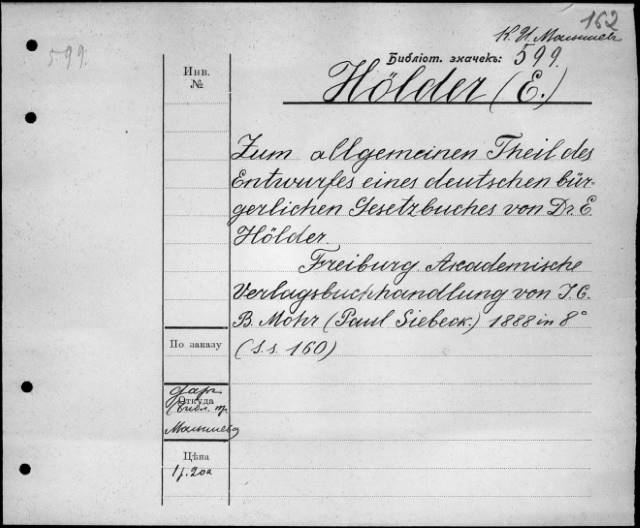 162
К. И. Малышев
599.
Библіот. значекъ: 599.
Инв.
№
Hölder (E.)
Zum allgemeinen Theil des
Entwurfes eines deutschen bür-
gerlichen Gesetzbuches von Dr. E.
Hölder.
Freiburg. Akademische
Verlagsbuchhandlung von J. C.
B. Mohr (Paul Siebeck.) 1888 in 8°
(s.s. 160)
По заказу
Откуда
даръ
Малышева
Цѣна